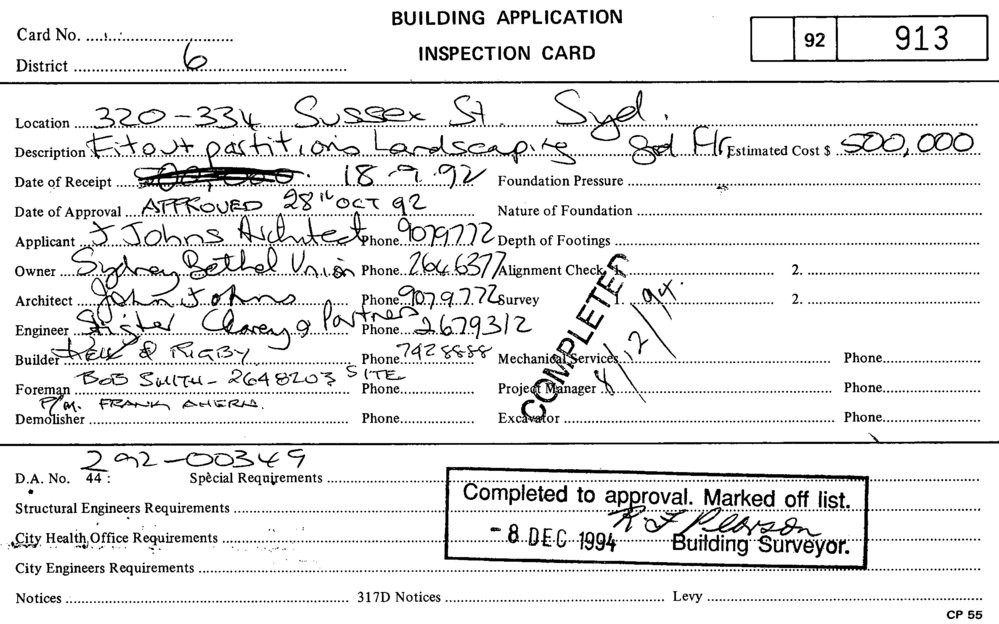 BUILDING APPLICATION
INSPECTION CARD
Card No.
District 6
92 913
Location 320-334 Sussex St. Syd.
Description Fitout partitions Landscaping Flr Estimated Cost $ 500,000
Date of Receipt 18-9.92 Foundation Pressure
Date of Approval APPROVED 28th OCT 92 Nature of Foundation
Applicant J Johns Architect Phone 9079772 Depth of Footings
Owner Sydney Bethel Union Phone 2646377 Alignment Check 1. 2.
Architect John Johns Phone 9079772 Survey 1. 2.
Engineer Partners Phone 2679312
Builder & RIGBY Phone 7428888 Mechanical Services Phone
Foreman BOB SMITH - 2648203 SITE Phone Project Manager Phone
P/M. FRANK AHERN.
Demolisher Phone Excavator Phone
COMPLETED
8/12/94.
D.A. No. 44 : 292-00349 Special Requirements
Structural Engineers Requirements
City Health Office Requirements
City Engineers Requirements
Completed to approval. Marked off list.
R F Pearson
-8 DEC 1994 Building Surveyor.
Notices 317D Notices Levy
CP 55